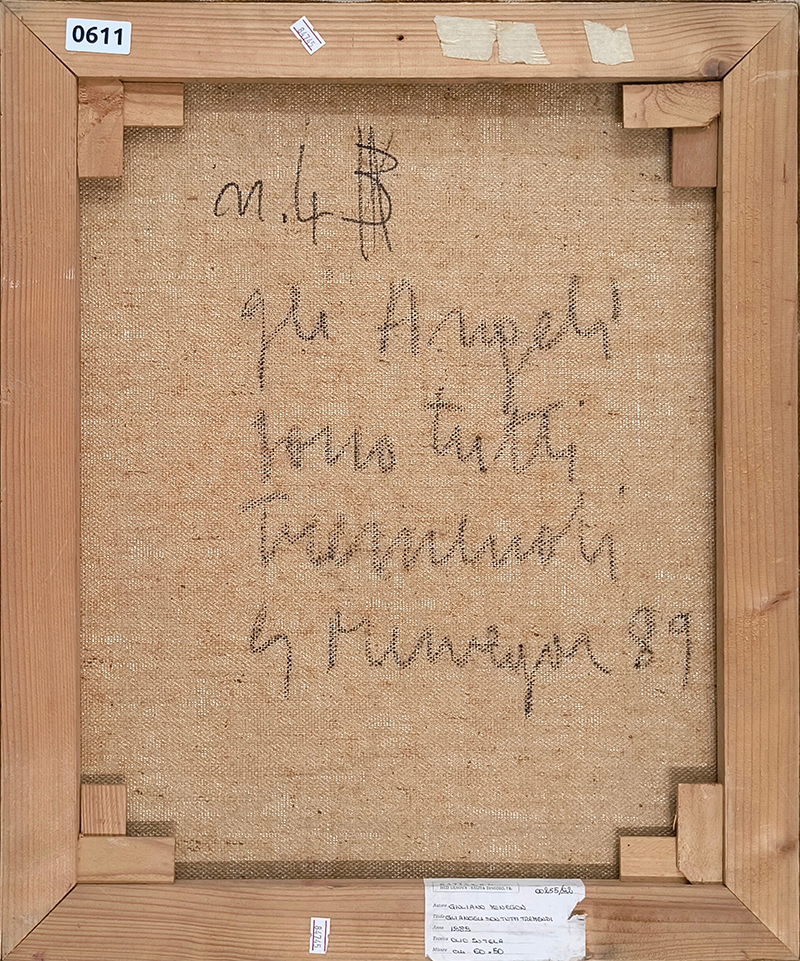 0611
84745
n. 4
gli Angeli
sono tutti
tremendi
G Menegon 89
00255/52
Autore GIULIANO MENEGON
Titolo GLI ANGELI SON TUTTI TREMENDI
Anno 1989
Tecnica OLIO SU TELA
Misure cm 60 x 50
84745